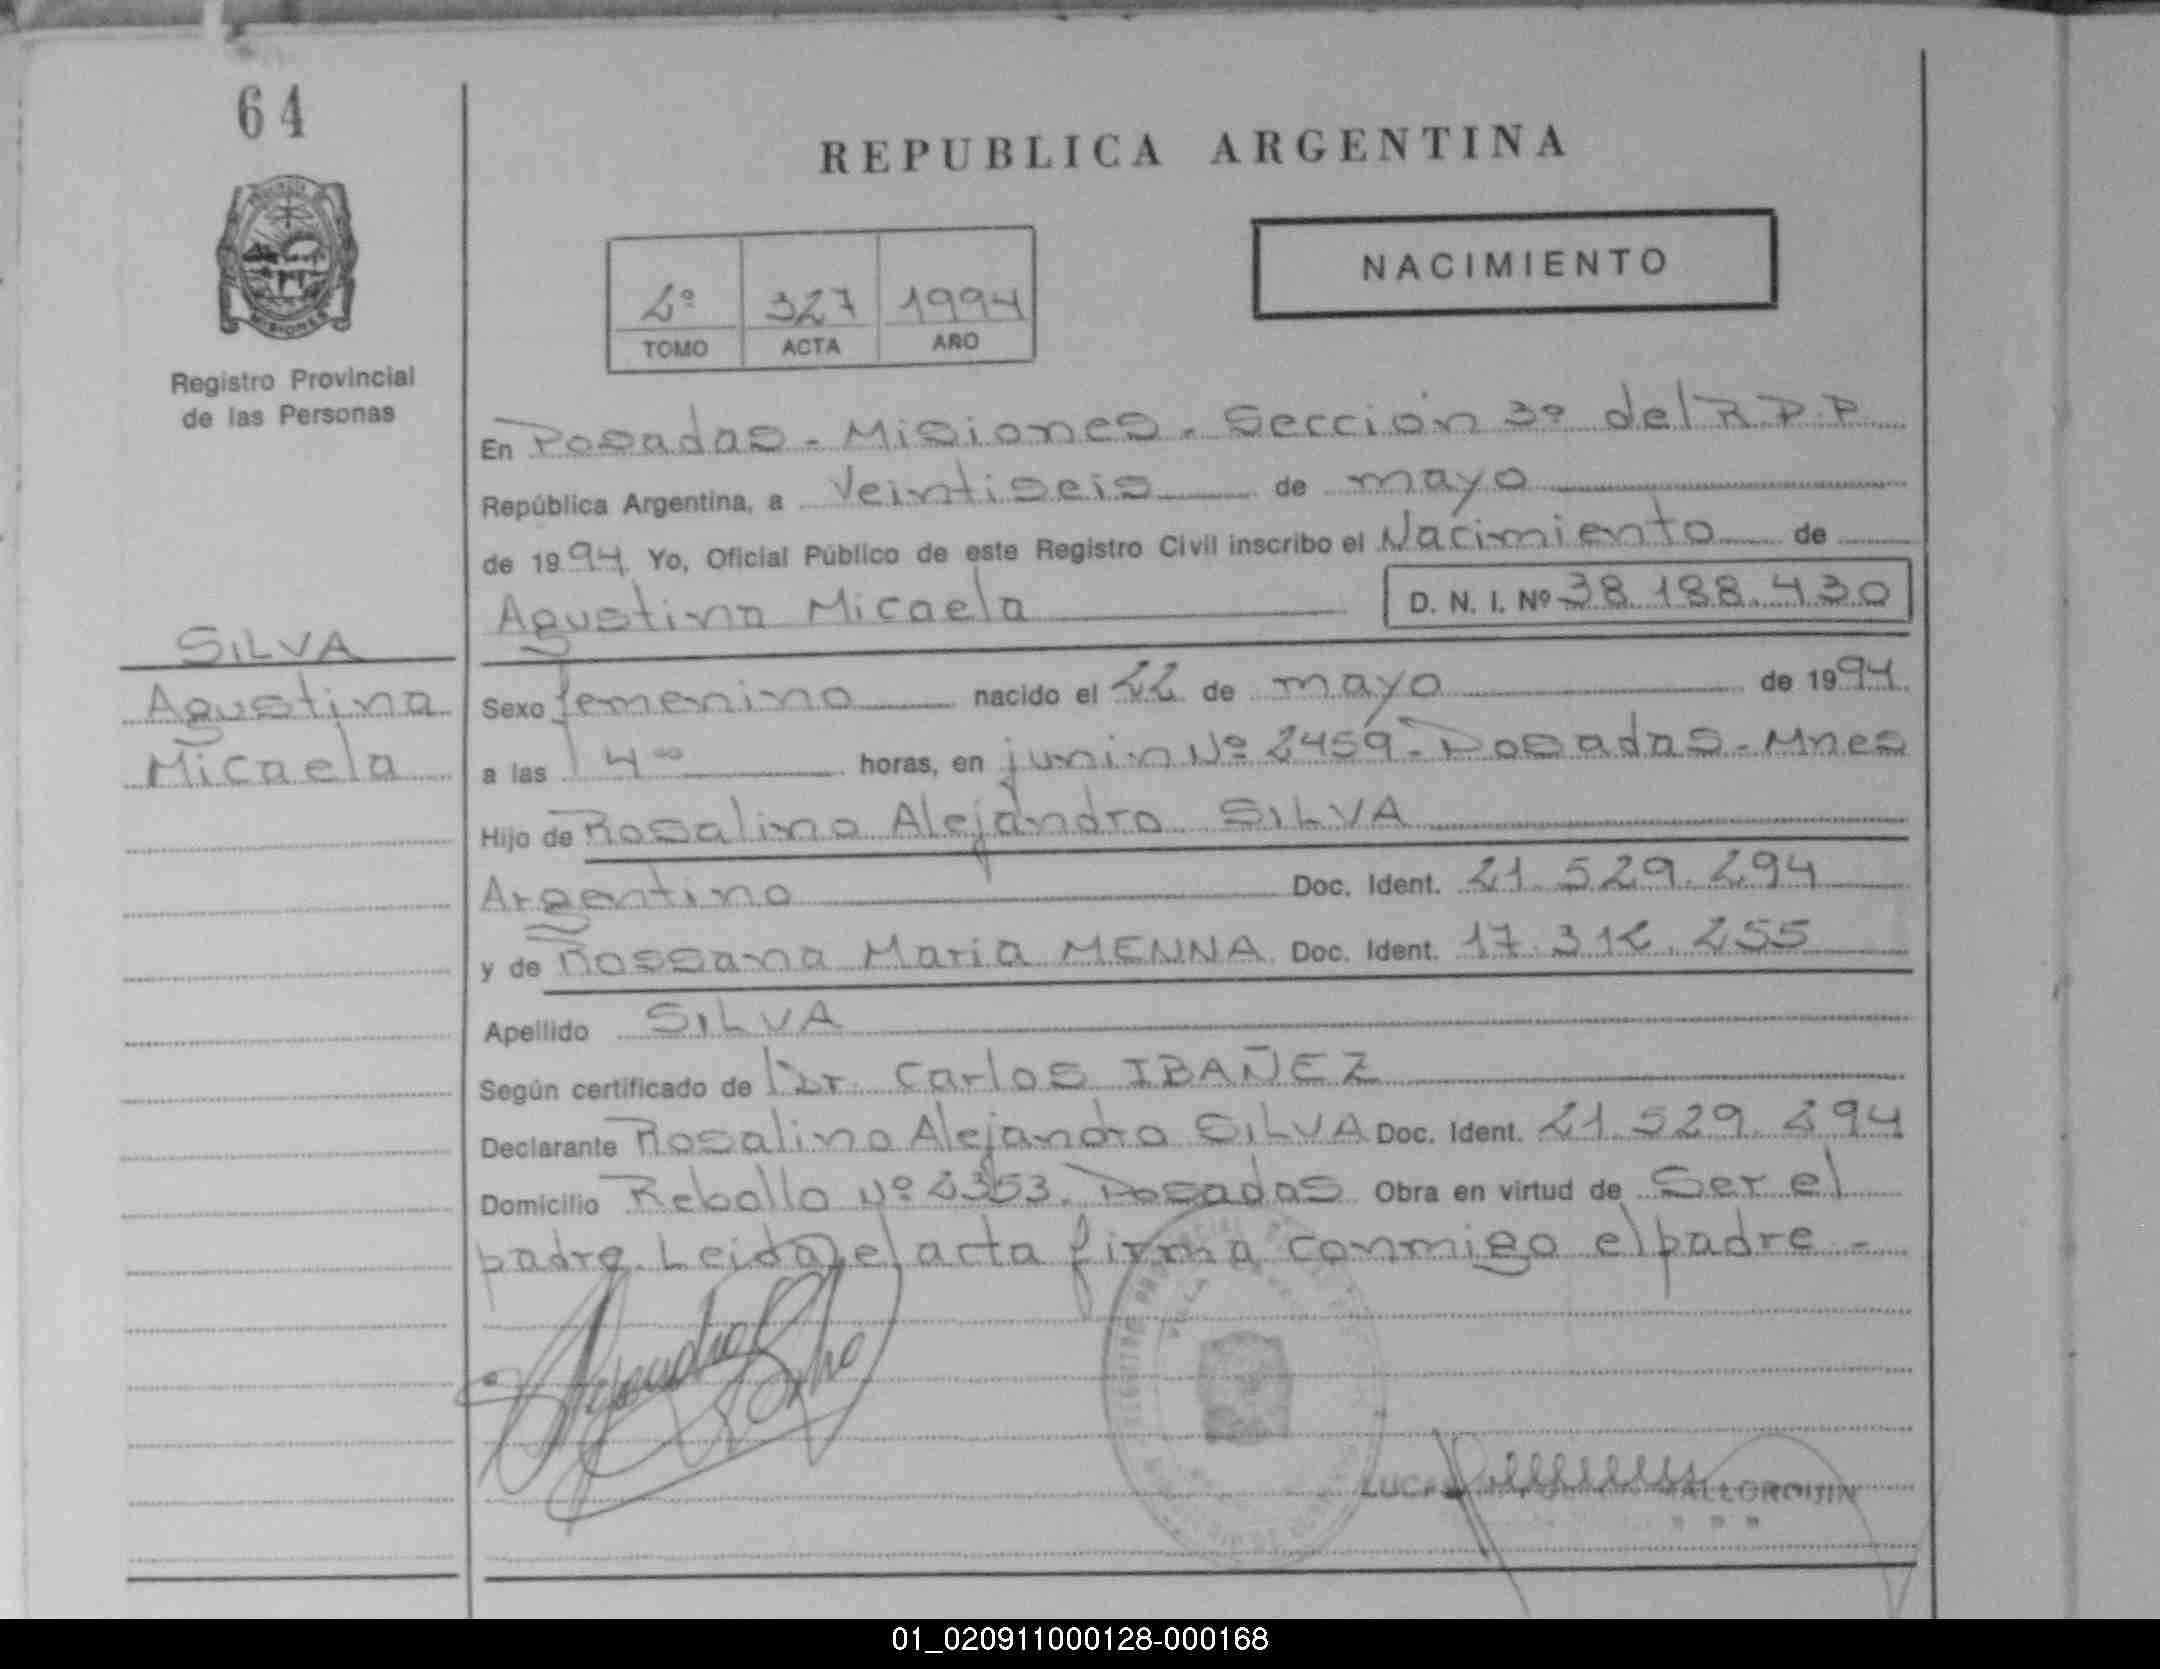 64
MISIONES
Registro Provincial
de las Personas
SILVA
Agustina
Micaela
REPUBLICA ARGENTINA
NACIMIENTO
2º 327 1994
TOMO ACTA AÑO
En Posadas - Misiones - Sección 3º del R.P.P.
República Argentina, a Veintiseis de mayo
de 1994 Yo, Oficial Público de este Registro Civil inscribo el Nacimiento de
Agustina Micaela D. N. I. Nº 38.188.430
Sexo femenino nacido el 22 de mayo de 1994
a las 4ºº horas, en junin Nº 2459 - Posadas - Mnes
Hijo de Rosalino Alejandro SILVA
Argentino Doc. Ident. 21.529.294
y de Rossana Maria MENNA Doc. Ident. 17.312.255
Apellido SILVA
Según certificado de Dr. Carlos IBAÑEZ
Declarante Rosalino Alejandro SILVA Doc. Ident. 21.529.294
Domicilio Rebollo Nº 2353. Posadas Obra en virtud de Ser el
padre. Leida el acta firma conmigo el padre -
Alejandro Silva
01_020911000128-000168